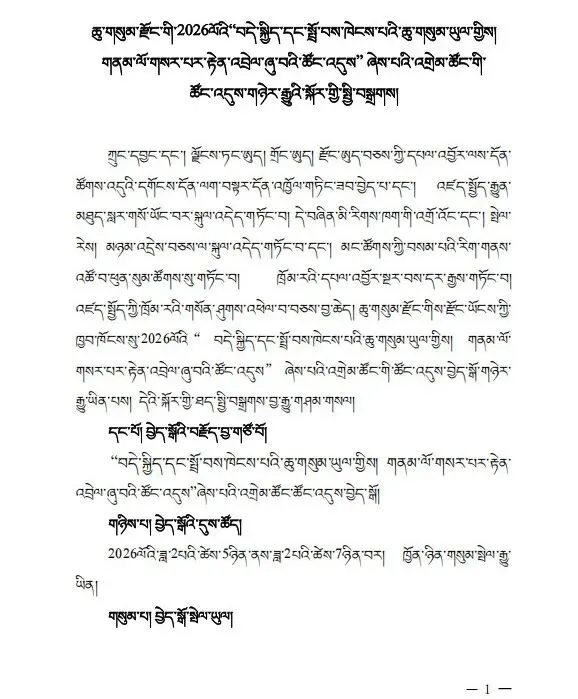 ཆུ་གསུམ་རྫོང་གི་2026ལོའི“བདེ་སྐྱིད་དང་སྤྲོ་བས་ཁེངས་པའི་ཆུ་གསུམ་ཡུལ་གྱིས།
གནམ་ལོ་གསར་པར་རྟེན་འབྲེལ་ཞུ་བའི་ཚོང་འདུས” ཞེས་པའི་འགྲེམ་ཚོང་གི་
ཚོང་འདུས་གཉེར་རྒྱུའི་སྐོར་གྱི་སྤྱི་བསྒྲགས།
ཀྲུང་དབྱང་དང་། ལྗོངས་ཏང་ཨུད། གྲོང་ཨུད། རྫོང་ཨུད་བཅས་ཀྱི་དཔལ་འབྱོར་ལས་དོན་
ཚོགས་འདུའི་དགོངས་དོན་ལག་བསྟར་དོན་འཁྱོལ་གཏིང་ཟབ་བྱེད་པ་དང་། འཛད་སྤྱོད་རྒྱུན་
མཐུད་སླར་གསོ་ཡོང་བར་སྐུལ་འདེད་གཏོང་བ། དེ་བཞིན་མི་རིགས་ཁག་གི་འགྲོ་འོང་དང་། སྤེལ་
རེས། མཉམ་འདྲེས་བཅས་ལ་སྐུལ་འདེད་གཏོང་བ་དང་། མང་ཚོགས་ཀྱི་བསམ་པའི་རིག་གནས་
འཚོ་བ་ཕུན་སུམ་ཚོགས་སུ་གཏོང་བ། ཁྲོམ་རའི་དཔལ་འབྱོར་སྔར་བས་དར་རྒྱས་གཏོང་བ།
འཛད་སྤྱོད་ཀྱི་ཁྲོམ་རའི་གསོན་ཤུགས་འཕེལ་བ་བཅས་བྱ་ཆེད། ཆུ་གསུམ་རྫོང་གིས་རྫོང་ཡོངས་ཀྱི་
ཁྱབ་ཁོངས་སུ་2026ལོའི “ བདེ་སྐྱིད་དང་སྤྲོ་བས་ཁེངས་པའི་ཆུ་གསུམ་ཡུལ་གྱིས། གནམ་ལོ་
གསར་པར་རྟེན་འབྲེལ་ཞུ་བའི་ཚོང་འདུས” ཞེས་པའི་འགྲེམ་ཚོང་གི་ཚོང་འདུས་བྱེད་སྒོ་གཉེར་
རྒྱུ་ཡིན་པས། དེའི་སྐོར་གྱི་ཐད་སྤྱི་བསྒྲགས་བྱ་རྒྱུ་གཤམ་གསལ།
དང་པོ། བྱེད་སྒོའི་བརྗོད་བྱ་གཙོ་བོ།
“བདེ་སྐྱིད་དང་སྤྲོ་བས་ཁེངས་པའི་ཆུ་གསུམ་ཡུལ་གྱིས། གནམ་ལོ་གསར་པར་རྟེན་
འབྲེལ་ཞུ་བའི་ཚོང་འདུས”ཞེས་པའི་འགྲེམ་ཚོང་ཚོང་འདུས་བྱེད་སྒོ།
གཉིས་པ། བྱེད་སྒོའི་དུས་ཚོད།
2026ལོའི་ཟླ་2པའི་ཚེས་5ཉིན་ནས་ཟླ་2པའི་ཚེས་7ཉིན་བར། ཁྱོན་ཉིན་གསུམ་སྤེལ་རྒྱུ་
ཡིན།
གསུམ་པ། བྱེད་སྒོ་སྤེལ་ཡུལ།
— 1 —